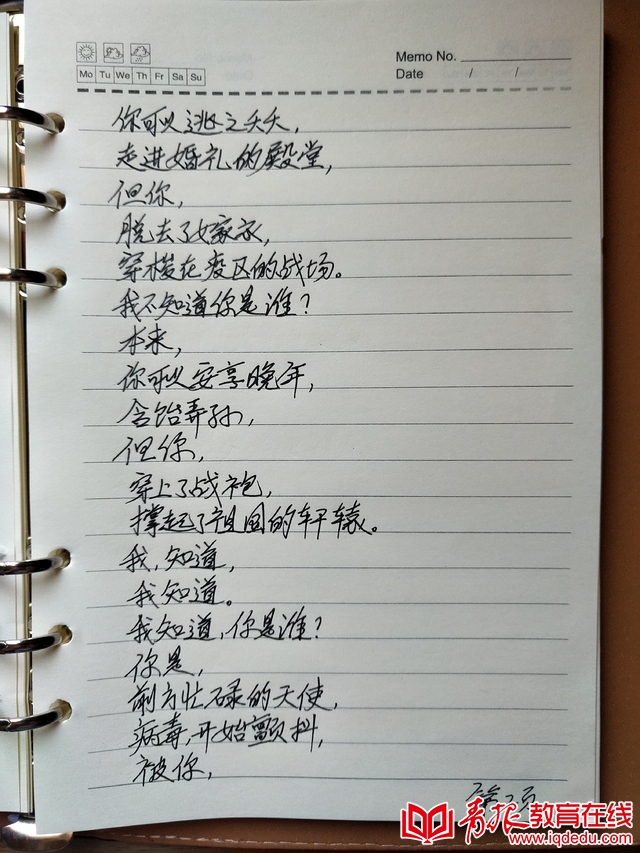 Memo No.
Mo Tu We Th Fr Sa Su
Date / /
你可以逃之夭夭,
走进婚礼的殿堂,
但你,
脱去了嫁衣,
穿梭在疫区的战场。
我不知道你是谁?
本来,
你可以安享晚年,
含饴弄孙,
但你,
穿上了战袍,
撑起了祖国的轩辕。
我,知道,
我知道。
我知道,你是谁?
你是,
前方忙碌的天使,
病毒,开始颤抖,
被你,
第2页
青报教育在线
www.iqdedu.com